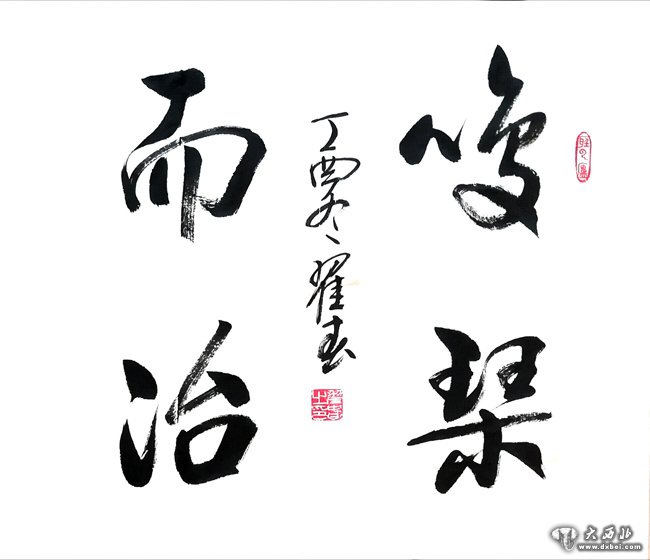 鸣琴
而治
丁酉冬翟
大西北
www.dxbei.com